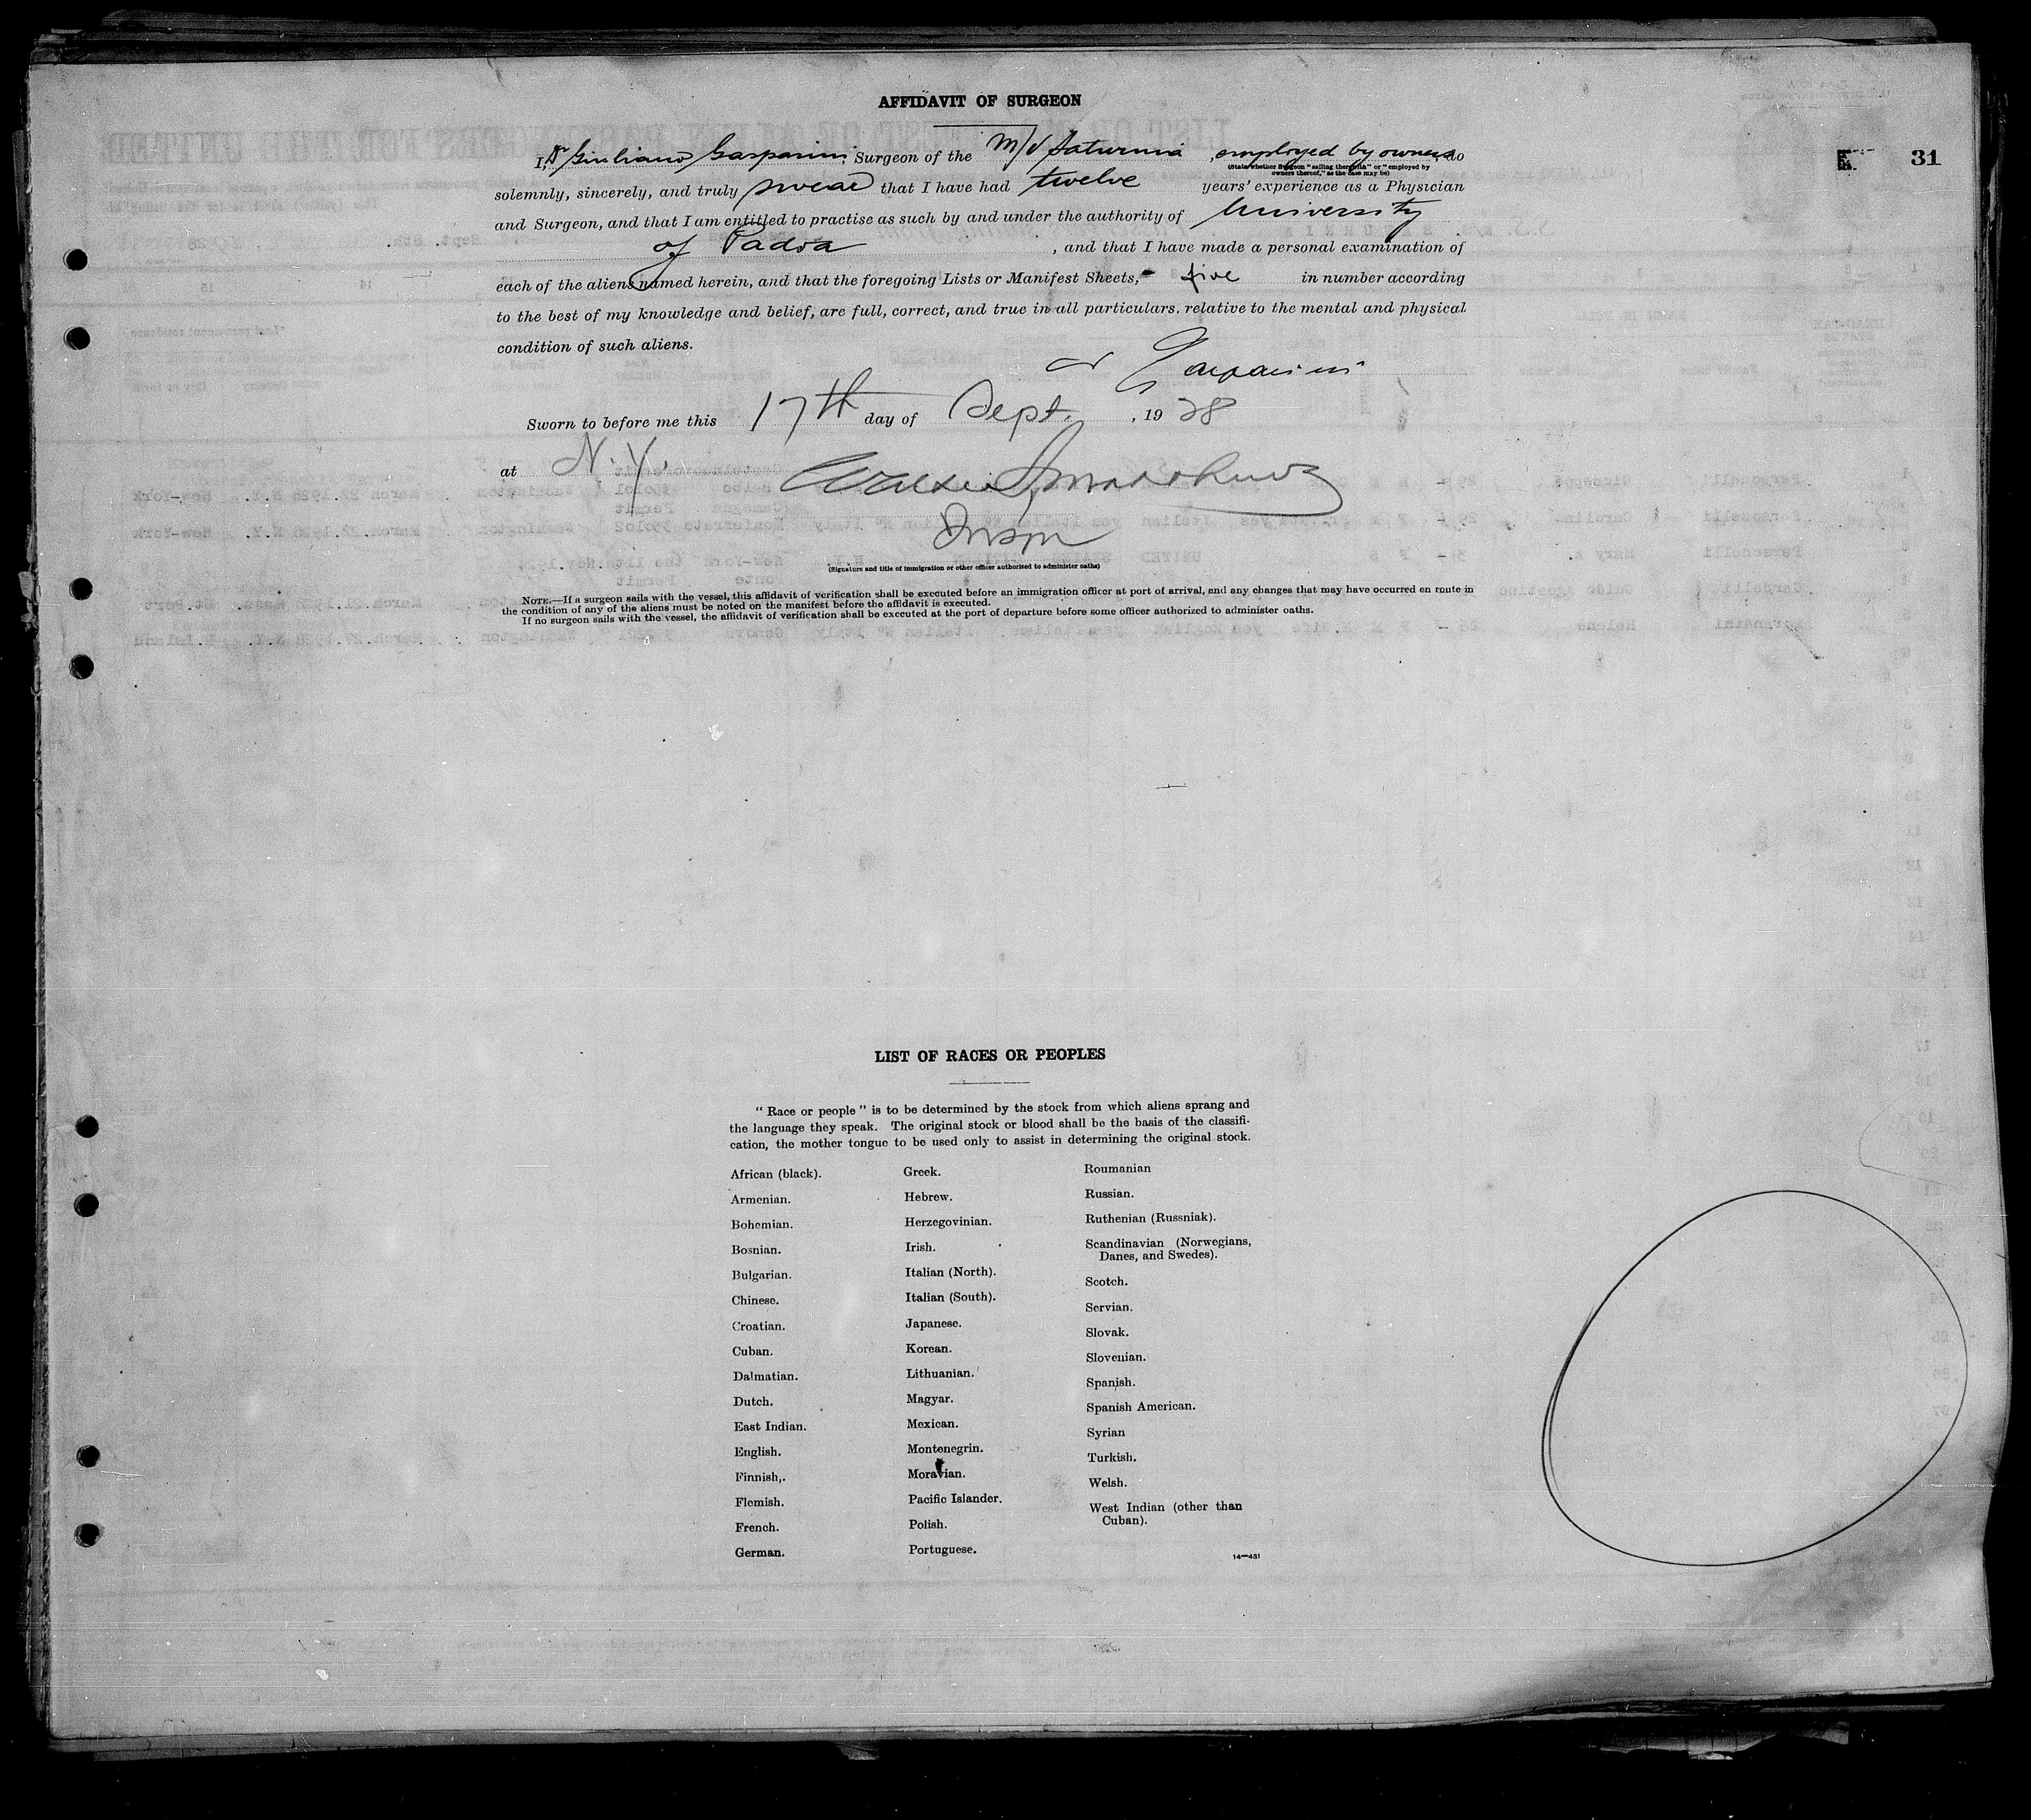 AFFIDAVIT OF SURGEON
31
I, Dr Giuliano Gasparini, Surgeon of the M/S Saturnia, employed by owners, do
(State whether Surgeon "sailing therewith" or "employed by
owners thereof," as the case may be)
solemnly, sincerely, and truly swear that I have had twelve years' experience as a Physician
and Surgeon, and that I am entitled to practise as such by and under the authority of University
of Padva, and that I have made a personal examination of
each of the aliens named herein, and that the foregoing Lists or Manifest Sheets, five in number according
to the best of my knowledge and belief, are full, correct, and true in all particulars. relative to the mental and physical
condition of such aliens.
Dr Gasparini
Sworn to before me this 17th day of Sept., 1928
at N.Y.
(Signature and title of immigration or other officer authorized to administer oaths)
NOTE.—If a surgeon sails with the vessel, this affidavit of verification shall be executed before an immigration officer at port of arrival, and any changes that may have occurred en route in
the condition of any of the aliens must be noted on the manifest before the affidavit is executed.
If no surgeon sails with the vessel, the affidavit of verification shall be executed at the port of departure before some officer authorized to administer oaths.
LIST OF RACES OR PEOPLES
"Race or people" is to be determined by the stock from which aliens sprang and
the language they speak. The original stock or blood shall be the basis of the classifi-
cation, the mother tongue to be used only to assist in determining the original stock.
African (black).
Armenian.
Bohemian.
Bosnian.
Bulgarian.
Chinese.
Croatian.
Cuban.
Dalmatian.
Dutch.
East Indian.
English.
Finnish.
Flemish.
French.
German.
Greek.
Hebrew.
Herzegovinian.
Irish.
Italian (North).
Italian (South).
Japanese.
Korean.
Lithuanian.
Magyar.
Mexican.
Montenegrin.
Moravian.
Pacific Islander.
Polish.
Portuguese.
Roumanian
Russian.
Ruthenian (Russniak).
Scandinavian (Norwegians,
Danes, and Swedes).
Scotch.
Servian.
Slovak.
Slovenian.
Spanish.
Spanish American.
Syrian
Turkish.
Welsh.
West Indian (other than
Cuban).
14—431